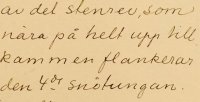 av det stenrev, som
nära på helt upp till
kammen flankerar
den 4de snötungan.